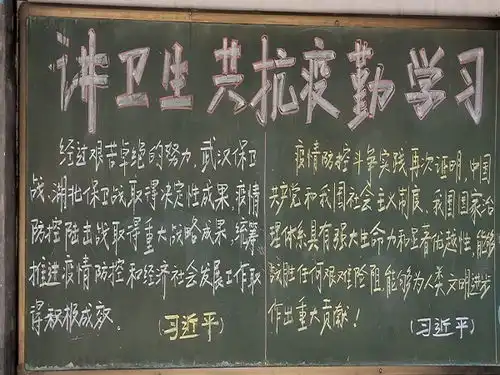 讲卫生 共抗疫 勤学习
经过艰苦卓绝的努力,武汉保卫
战、湖北保卫战取得决定性成果,疫情
防控阻击战取得重大战略成果,统筹
推进疫情防控和经济社会发展工作取
得积极成效。
(习近平)
疫情防控斗争实践再次证明,中国
共产党和我国社会主义制度、我国国家治
理体系具有强大生命力和显著优越性,能够
战胜任何艰难险阻,能够为人类文明进步
作出重大贡献!
(习近平)